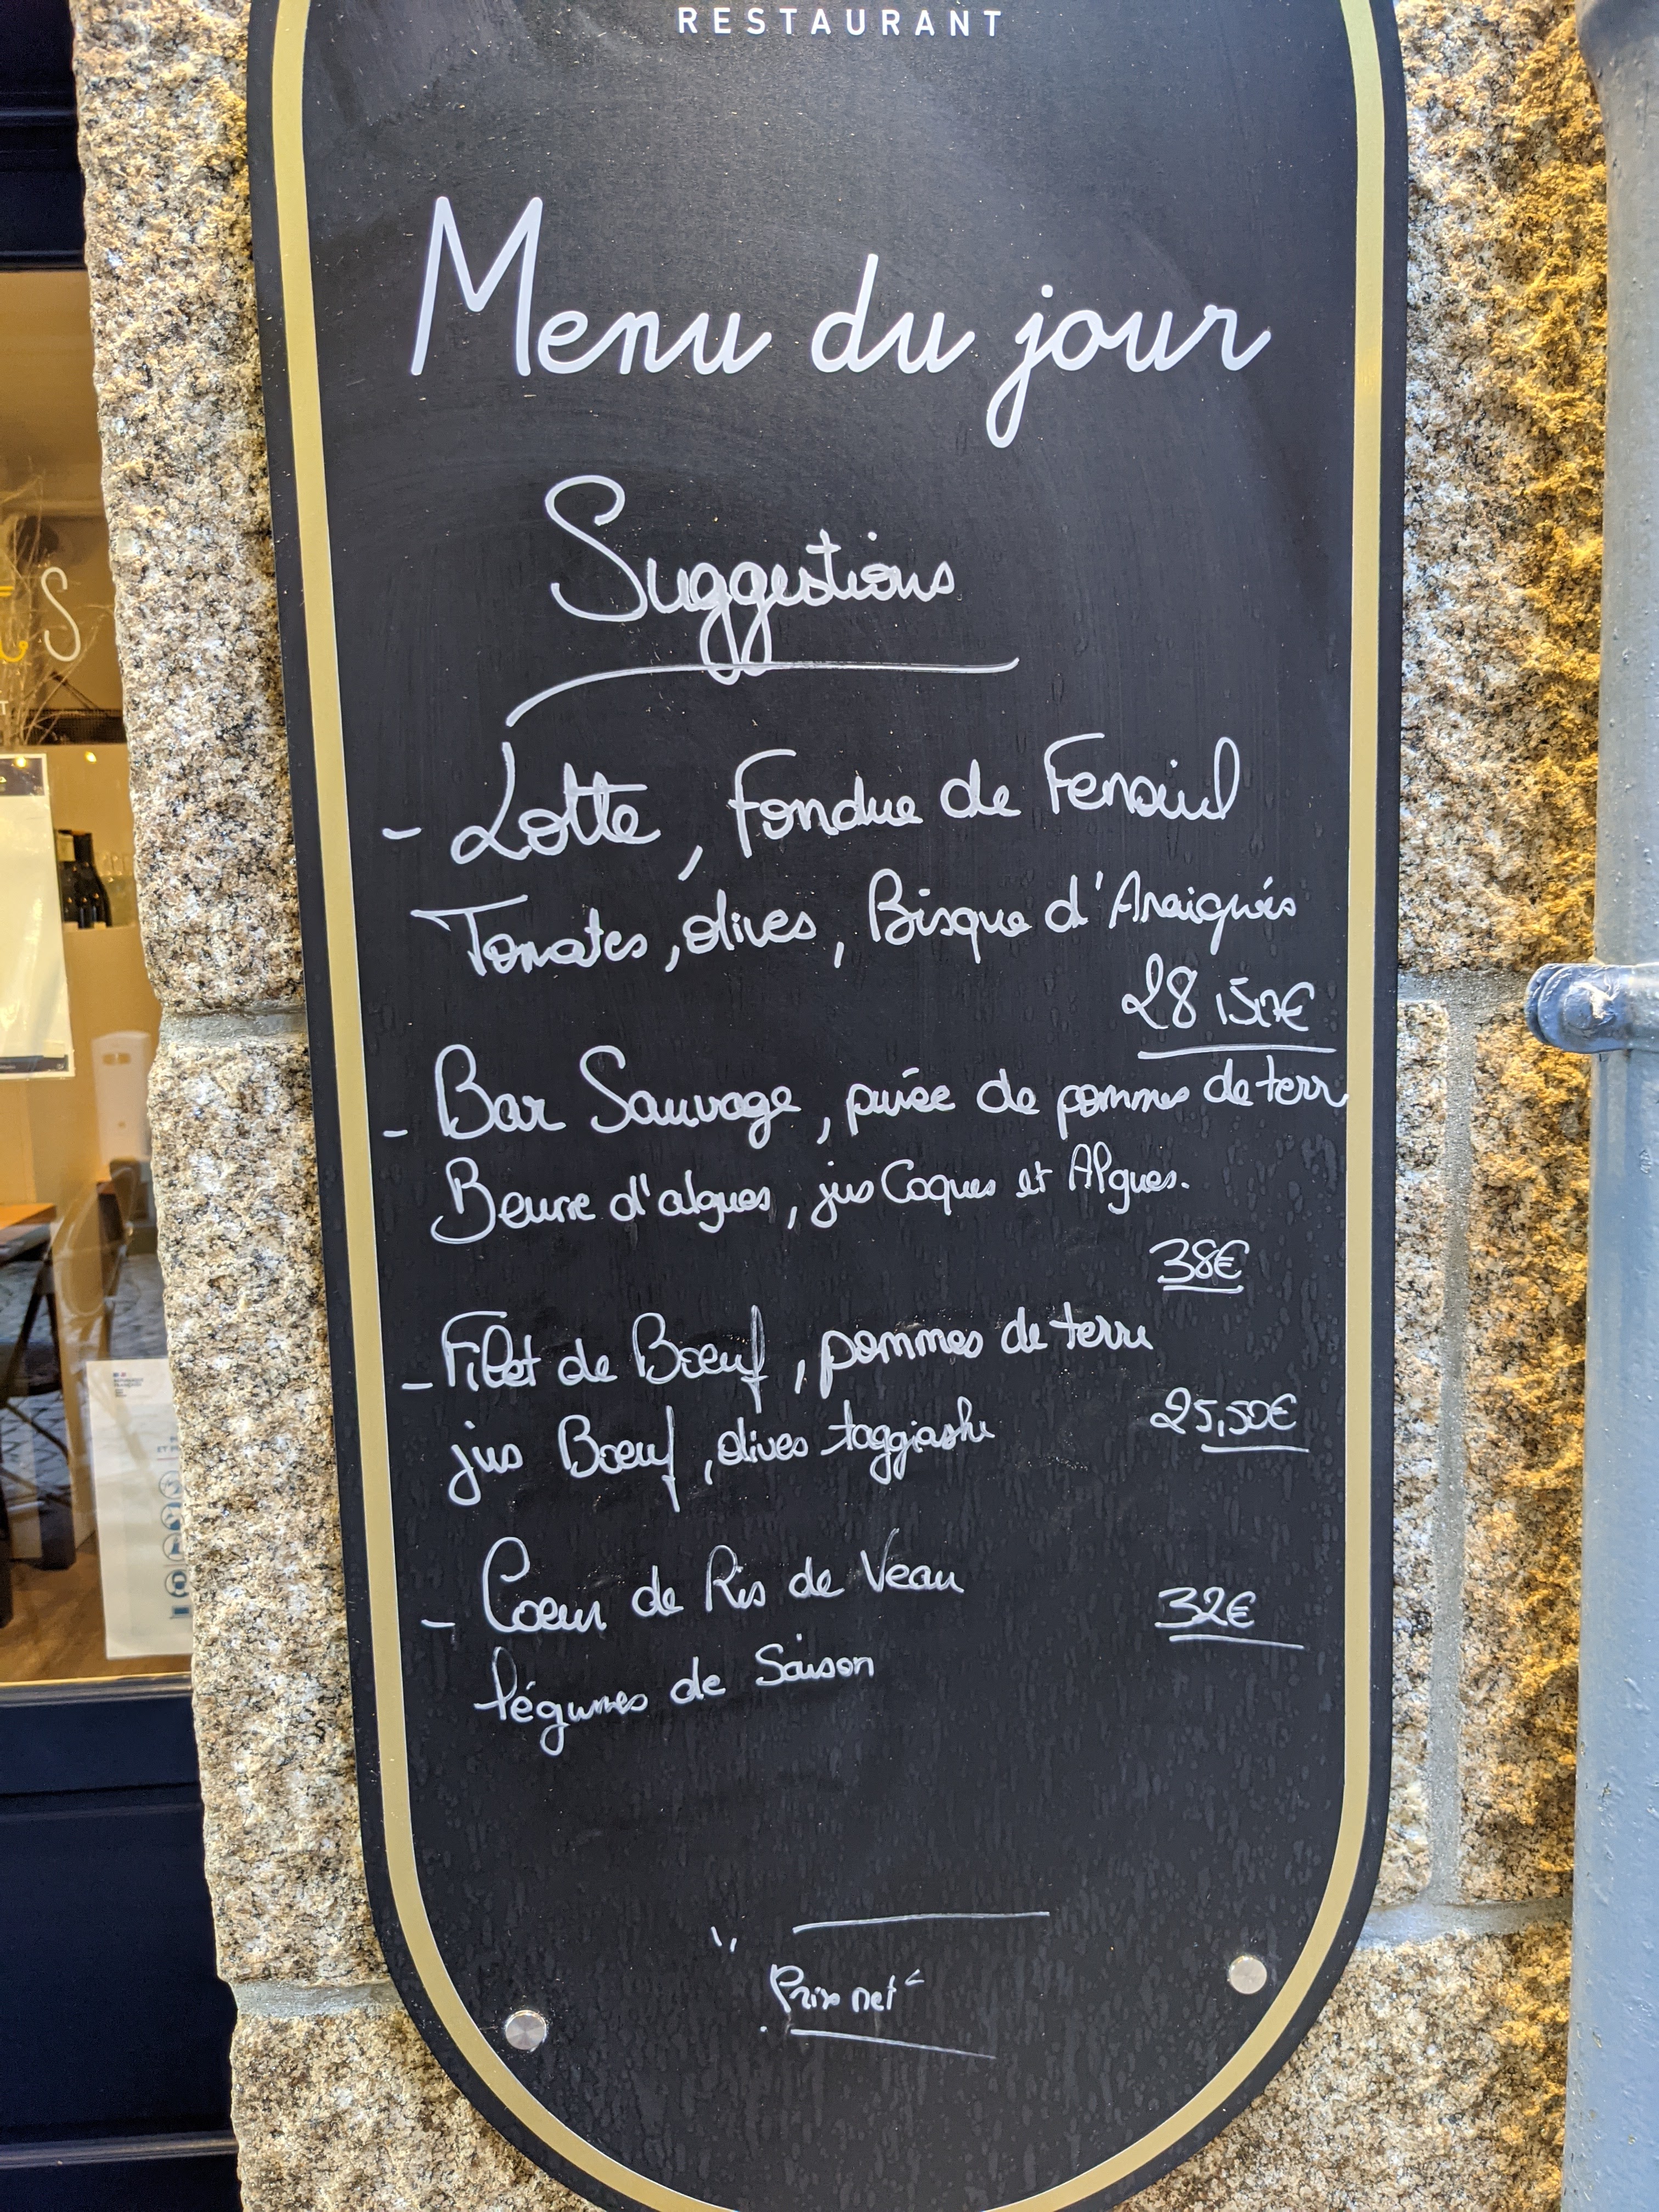 RESTAURANT
Menu du jour
Suggestions
- Lotte, Fondue de Fenouil
Tomates, olives, Bisque d'Araignées
28
- Bar Sauvage, purée de pommes de terr
Beurre d'algues, jus Coques et Algues.
38€
- Filet de Boeuf, pommes de terre
jus Boeuf, olives taggiashe
25,50€
- Coeur de Ris de Veau
32€
légumes de Saison
Prix net
S